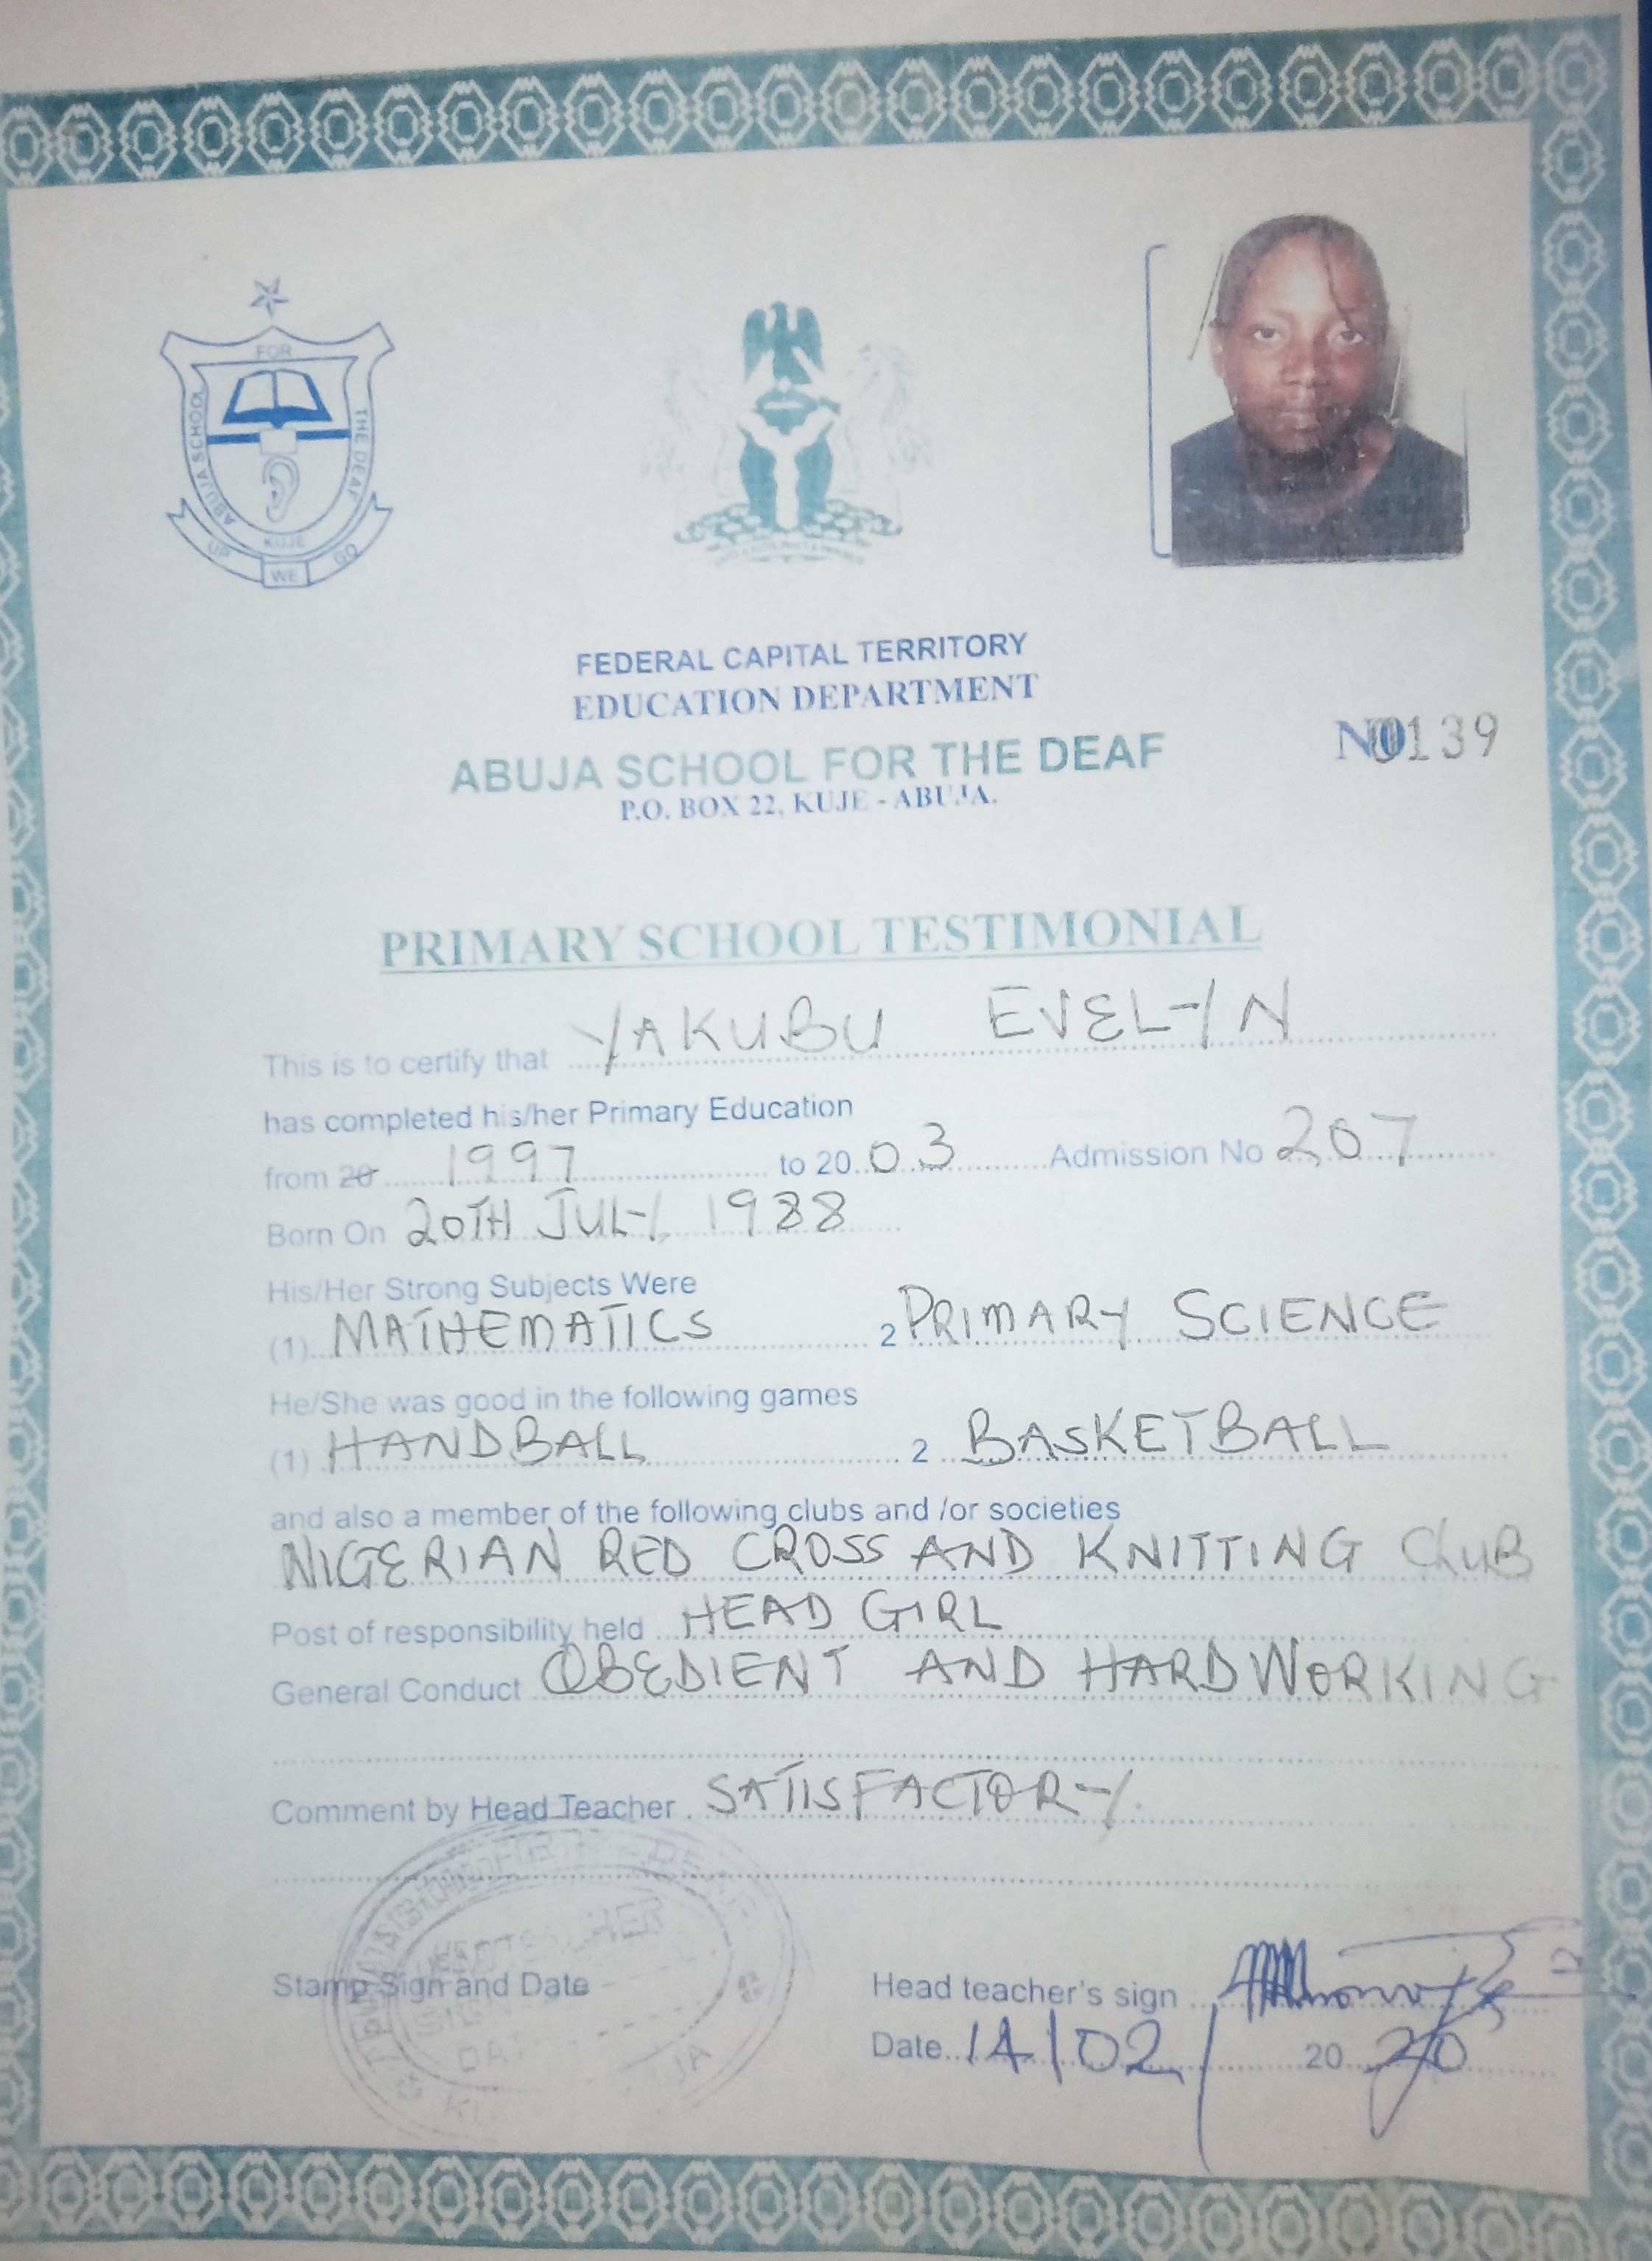 FOR
ABUJA SCHOOL
THE DEAF
KUJE
UP WE GO
FEDERAL CAPITAL TERRITORY
EDUCATION DEPARTMENT
ABUJA SCHOOL FOR THE DEAF
NO 0139
P.O. BOX 22, KUJE - ABUJA.
PRIMARY SCHOOL TESTIMONIAL
This is to certify that YAKUBU EVELYN
has completed his/her Primary Education
from 20 1997 to 20 03 Admission No 207
Born On 20TH JULY, 1988
His/Her Strong Subjects Were
(1) MATHEMATICS 2 PRIMARY SCIENCE
He/She was good in the following games
(1) HANDBALL 2 BASKETBALL
and also a member of the following clubs and /or societies
NIGERIAN RED CROSS AND KNITTING CLUB
Post of responsibility held HEAD GIRL
General Conduct OBEDIENT AND HARDWORKING
Comment by Head Teacher SATISFACTORY.
Stamp Sign and Date
Head teacher's sign
Date 14/02/ 20 20